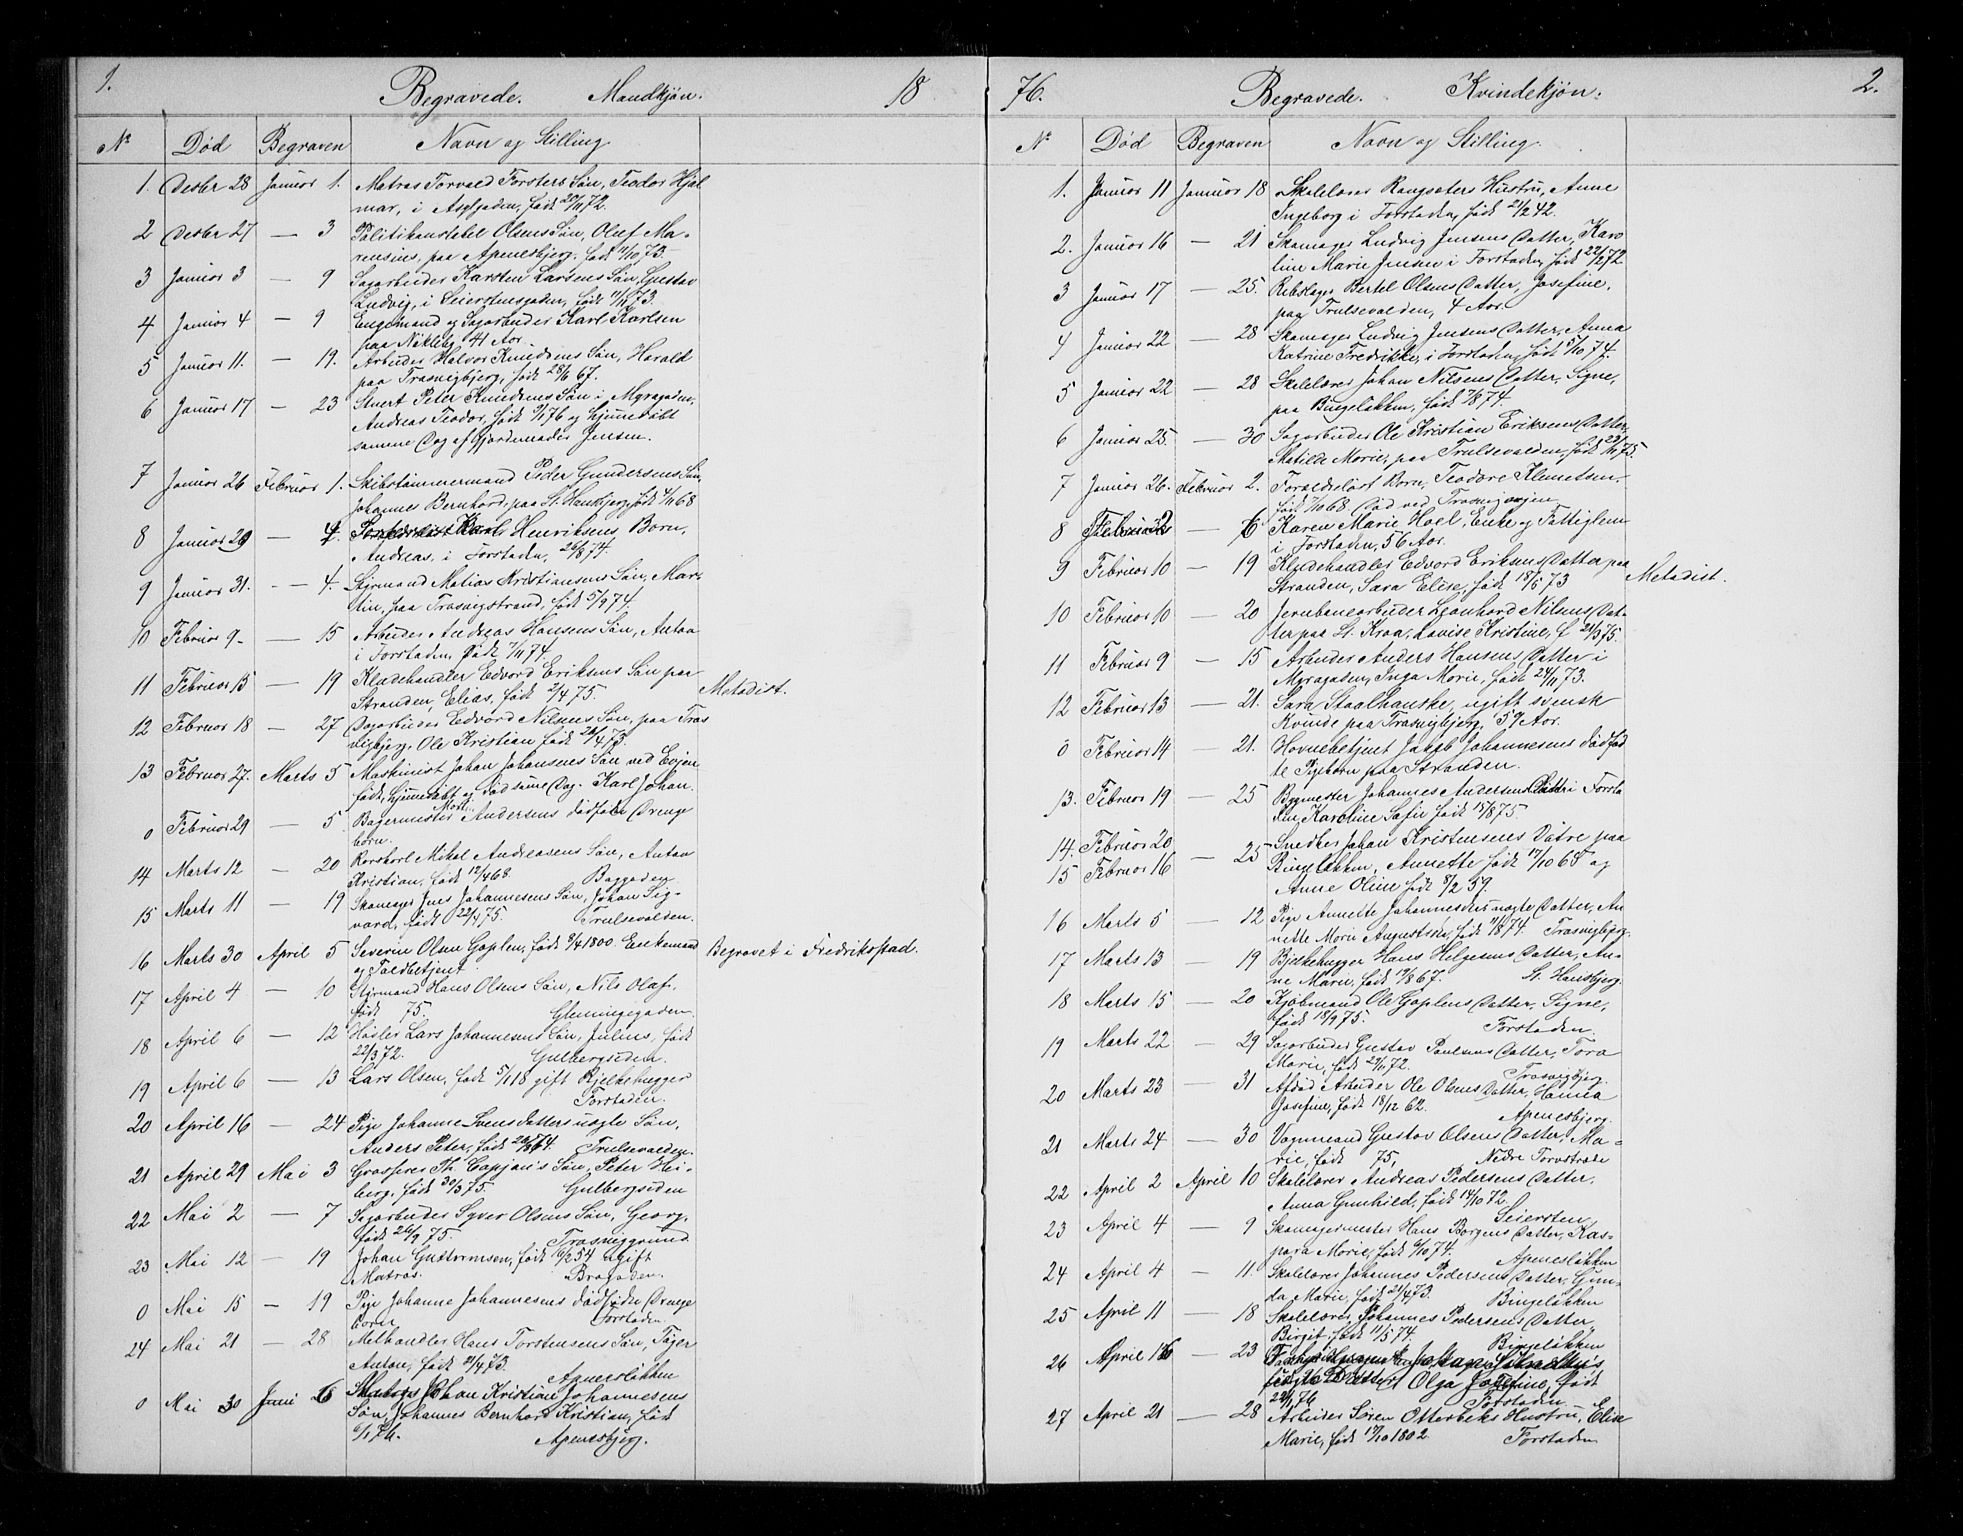 1. Begravede. Mandkjøn. 18
No Død Begraven Navn og Stilling
1. Desbr 28 Januar 1. Matros Torvald Torsters Søn, Teodor Hjal
mar, i født 72.
2 Desbr 27 — 3 Politikonstabel Olsens Søn, Oluf Ma-
rensius, paa Apenesbjerg. født 11/10 73.
3 Januar 3 — 9 Sagarbeider Karsten Larsens Søn, Gustav
Ludvig, i Seierstensgaden, født 73.
4 Januar 4 — 9 Engemand og Sagarbeider Karl Karlsen
paa Nøkleby 41 Aar.
5 Januar 11. — 19. Arbeider Halvor Knudsens Søn, Harald
paa Trosvigbjerg, født 28/6 67.
6 Januar 17 — 23 Stuert Peter Knudsens Søn i Myragaden,
Andreas Teodor, født 9/1 76 og hjemmedøbt
samme Dag af Gjordemoder Jensen.
7 Januar 26 Februar 1. Skibstømmermand Peder Gundersens Søn,
Johannes Bernhard, paa St. Hansbjerg, født 68
8 Januar 29 — 4. Karl Henriksens Barn,
Andreas, i Forstaden, 26/8 74.
9 Januar 31. — 4. Styrmand Matias Kristiansens Søn, Mar-
tin, paa Trosvigstrand, født 5/9 74.
10 Februar 9 — 15 Arbeider Andreas Hansens Søn, Anton
i Forstaden, født 7/11 74.
11 Februar 15 — 19 Klædehandler Edvard Eriksens Søn paa
Stranden, Elias, født 2/4 75. Metodist.
12 Februar 18 — 27 Dagarbeider Edvard Nilsens Søn, paa Tros
vigbjerg, Ole Kristian født 4 73.
13 Februar 27. Marts 5 Maskinist Johan Johansens Søn ved Evjen
født, hjemmedøbt og død samme Dag. Karl Johan.
0 Februar 29 — 5. Bagermester Andersens dødfødte Drenge
barn.
14 Marts 12 — 20 Rorskarl Mikal Andreasens Søn, Anton
Kristian, født 12/4 68. Baggaden
15 Marts 11 — 19 Skomager Jens Johannesens Søn, Johan Sig-
vard, født 22/4 75. Trulsevolden.
16 Marts 30 April 5 Severin Olsen Goplen, født 9/4 1800. Enkemand Begravet i Fredrikstad.
og Toldbetjent.
17 April 4 — 10 Styrmand Hans Olsens Søn, Nils Olaf.
født 75. Glemmengegaden
18 April 6 — 12 Lars Johannesens Søn, Julius, født
22/3 72. Gulbergsiden.
19 April 6 — 13 Lars Olsen, født 5/1 18 gift Bjelkehugger
Forstaden.
20 April 16 — 24 Pige Johanne Svensdatters uægte Søn,
Anders Peter, født 64. Trulsevolden.
21 April 29 Mai 3 Grosserer Th. Søn, Peter Hei-
berg, født 30/3 75. Gulbergsiden
22 Mai 2 — 7 Sagarbeider Syver Olsens Søn, Georg,
født 26/9 75. Trosviggrund
23 Mai 12 — 19 Johan Guttormsen, født 2 54 ugift
Matros. Brogaden.
0 Mai 15 — 19 Pige Johanne Johannesens dødfødte Drenge
barn Forstaden
24 Mai 21 — 28 Melhandler Hans Torstensens Søn,
Anton, født 21/4 73. Apenesløkken
0 Mai 30 Juni 6 Johan Kristian Johannesens
Søn, Johannes Bernhard Kristian, født
6/1 76. Apenesbjerg.
76. Begravede. Kvindekjøn. 2.
No Død Begraven Navn og Stilling.
1. Januar 11 Januar 18 Skolelærer Rangsæters Hustru, Anne
Ingeborg i Forstaden, født 21/2 42.
2. Januar 16 — 21 Skomager Ludvig Jensens Datter, Karo
line Marie Jensen i Forstaden, født 22/12 72
3 Januar 17 — 25. Rebslager Bertel Olsens Datter, Josefine,
paa Trulsevolden, 4 Aar.
4 Januar 22 — 28 Skomager Ludvig Jensens Datter, Anna
Katrine Fredrikke, i Forstaden, født 5/10 74.
5 Januar 22 — 28 Skolelærer Johan Nilsens Datter, Signe,
paa Bingeløkken, født 7/8 74.
6 Januar 25 — 30 Sagarbeider Ole Kristian Eriksens Datter,
Matilde Marie, paa Trulsevolden, født 75.
7 Januar 26. Februar 2. Forældreløst Barn, Teodore Klemetsen,
født 68. Død ved Trosvigveien
8 Februar 2 — 6 Karen Marie Hoel, Enke og Fattiglem
i Forstaden, 56 Aar.
9 Februar 10 — 19 Klædehandler Edvard Eriksens Datter paa
Stranden, Sara Elise, født 18/5 73 Metodist.
10 Februar 10 — 20 Jernbanearbeider Leonhard Nilsens Dat-
ter paa L. Kraa, Lovise Kristine, f 21/9 75.
11 Februar 9 — 15 Arbeider Anders Hansens Datter i
Myragaden, Inga Marie, født 24/11 73.
12 Februar 13 — 21. Sara Staalhanske, ugift svensk
Kvinde paa Trosvigbjerg, 57 Aar.
0 Februar 14 — 21. Havnebetjent Jakob Johannesens dødfød
te Pigebarn paa Stranden.
13. Februar 19 — 25 Bygmester Johannes Andersens Datter i Forsta
den, Karoline Sofie født 15/8 75.
14. Februar 20 Snedker Johan Kristensens Døtre paa
15 Februar 16 — 25 Bingeløkken, Annette født 17/10 68 og
Anne Oline født 8/2 59.
16 Marts 5 — 12 Pige Annette Johannesens uægte Datter, An
nette Marie Augusta, født 74. Trosvigbjerg.
17 Marts 13 — 19 Bjelkehugger Hans Helgesens Datter, An-
ne Marie, født 19/8 67. St. Hansbjerg.
18 Marts 15 — 20 Kjøbmand Ole Goplens Datter, Signe,
født 18/9 75. Forstaden.
19 Marts 22 — 29 Sagarbeider Gustav Paulsens Datter, Tora
Marie, født 24/11 72. Trosvigbjerg.
20 Marts 23 — 31 Afdød Arbeider Ole Olsens Datter, Hanna
Josefine, født 18/12 62. Apenesbjerg.
21 Marts 24 — 30 Vognmand Gustav Olsens Datter, Ma-
rie, født 75, Nedre Torvstræde
22 April 2 April 10 Skolelærer Andreas Pedersens Datter,
Anna Gunhild, født 14/10 72. Seiersten
23 April 4 — 9 Skomagermester Hans Borgens Datter, Kas-
para Marie, født 10 74. Apenesløkken
24 April 4 — 11. Skolelærer Johannes Pedersens Datter, Gun-
da Marie, født 21/4 73. Bingeløkken
25 April 11 — 18 Skolelærer Johannes Pedersens Datter,
Birgit, født 11/5 74. Bingeløkken
26 April 16 — 23
Olga Josefine, født
22/1 76 Forstaden
27 April 21 — 28 Arbeider Søren Otterbeks Hustru, Elise
Marie, født 17/10 1802. Forstaden